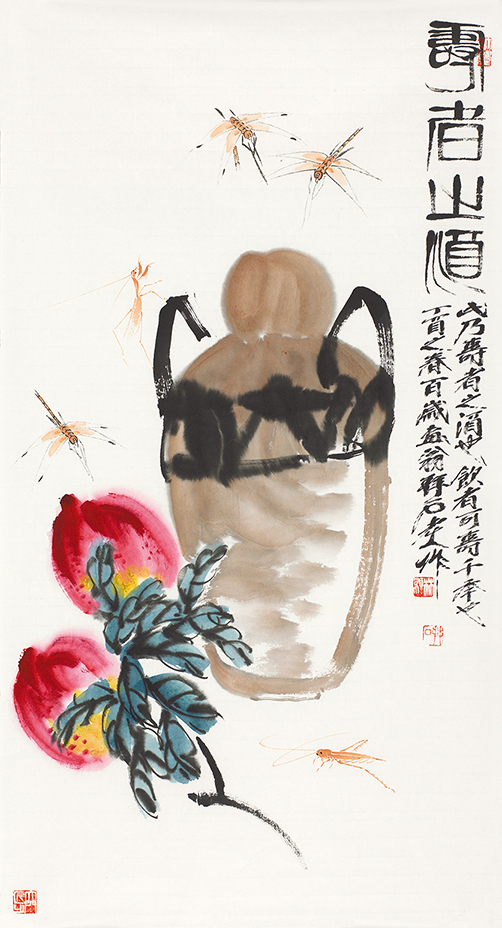 壽者之酒
此乃壽者之酒也飲者可壽千年也
丁酉之春百歲畫翁石老人作